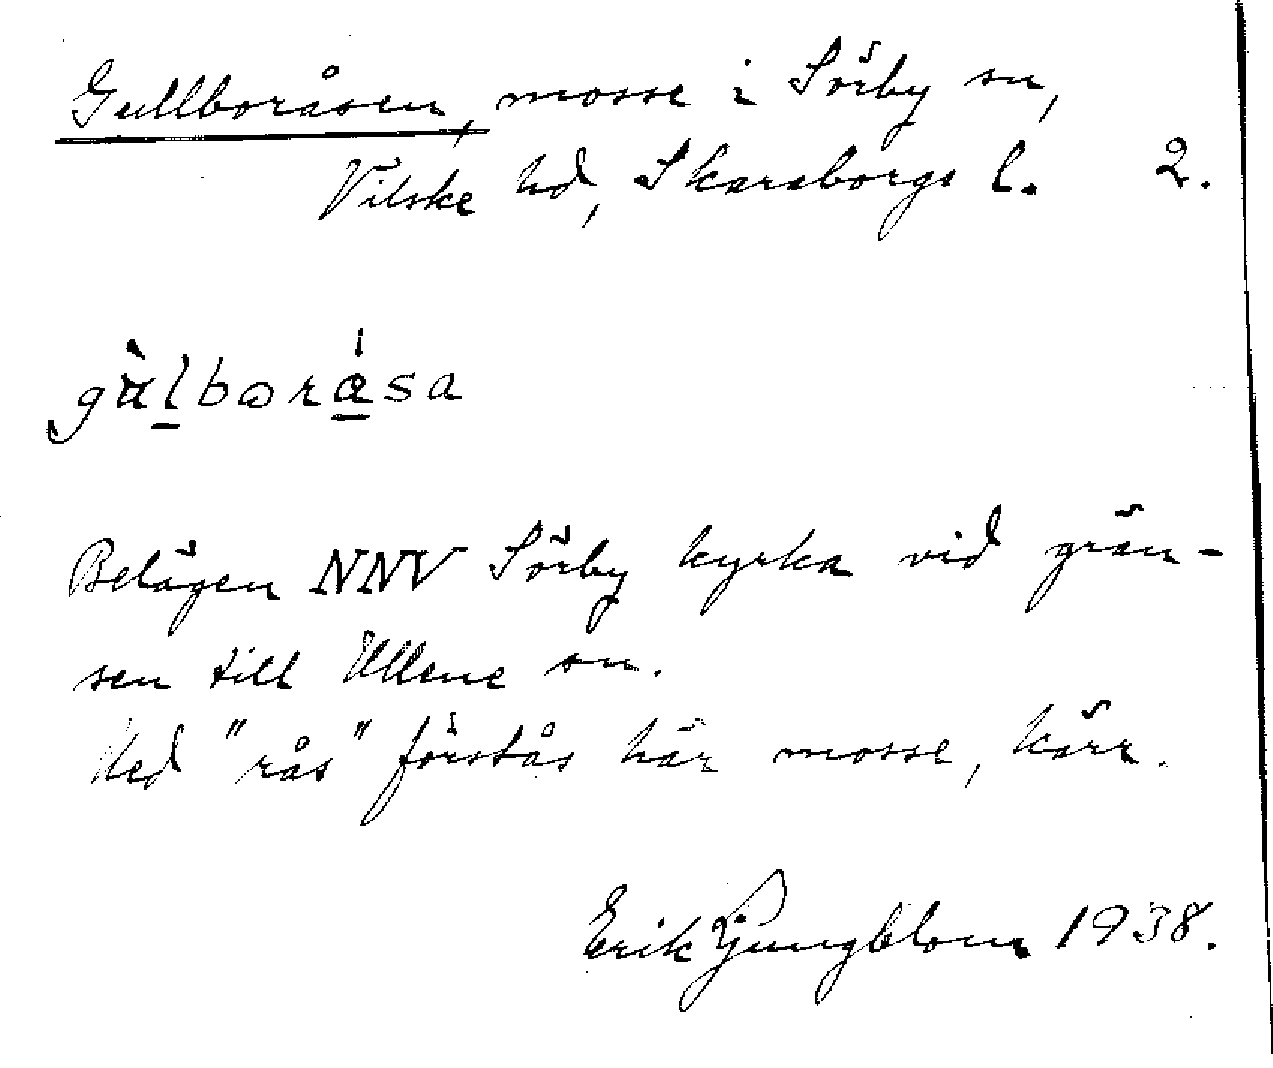 Gullboråsen, mosse i Sörby sn,
Vilske hd, Skaraborgs l. 2.
gùlborǻsa
Belägen NNV Sörby kyrka vid grän-
sen till Ullene sn.
Med "rås" förstås här mosse, kärr.
Erik Ljungblom 1938.